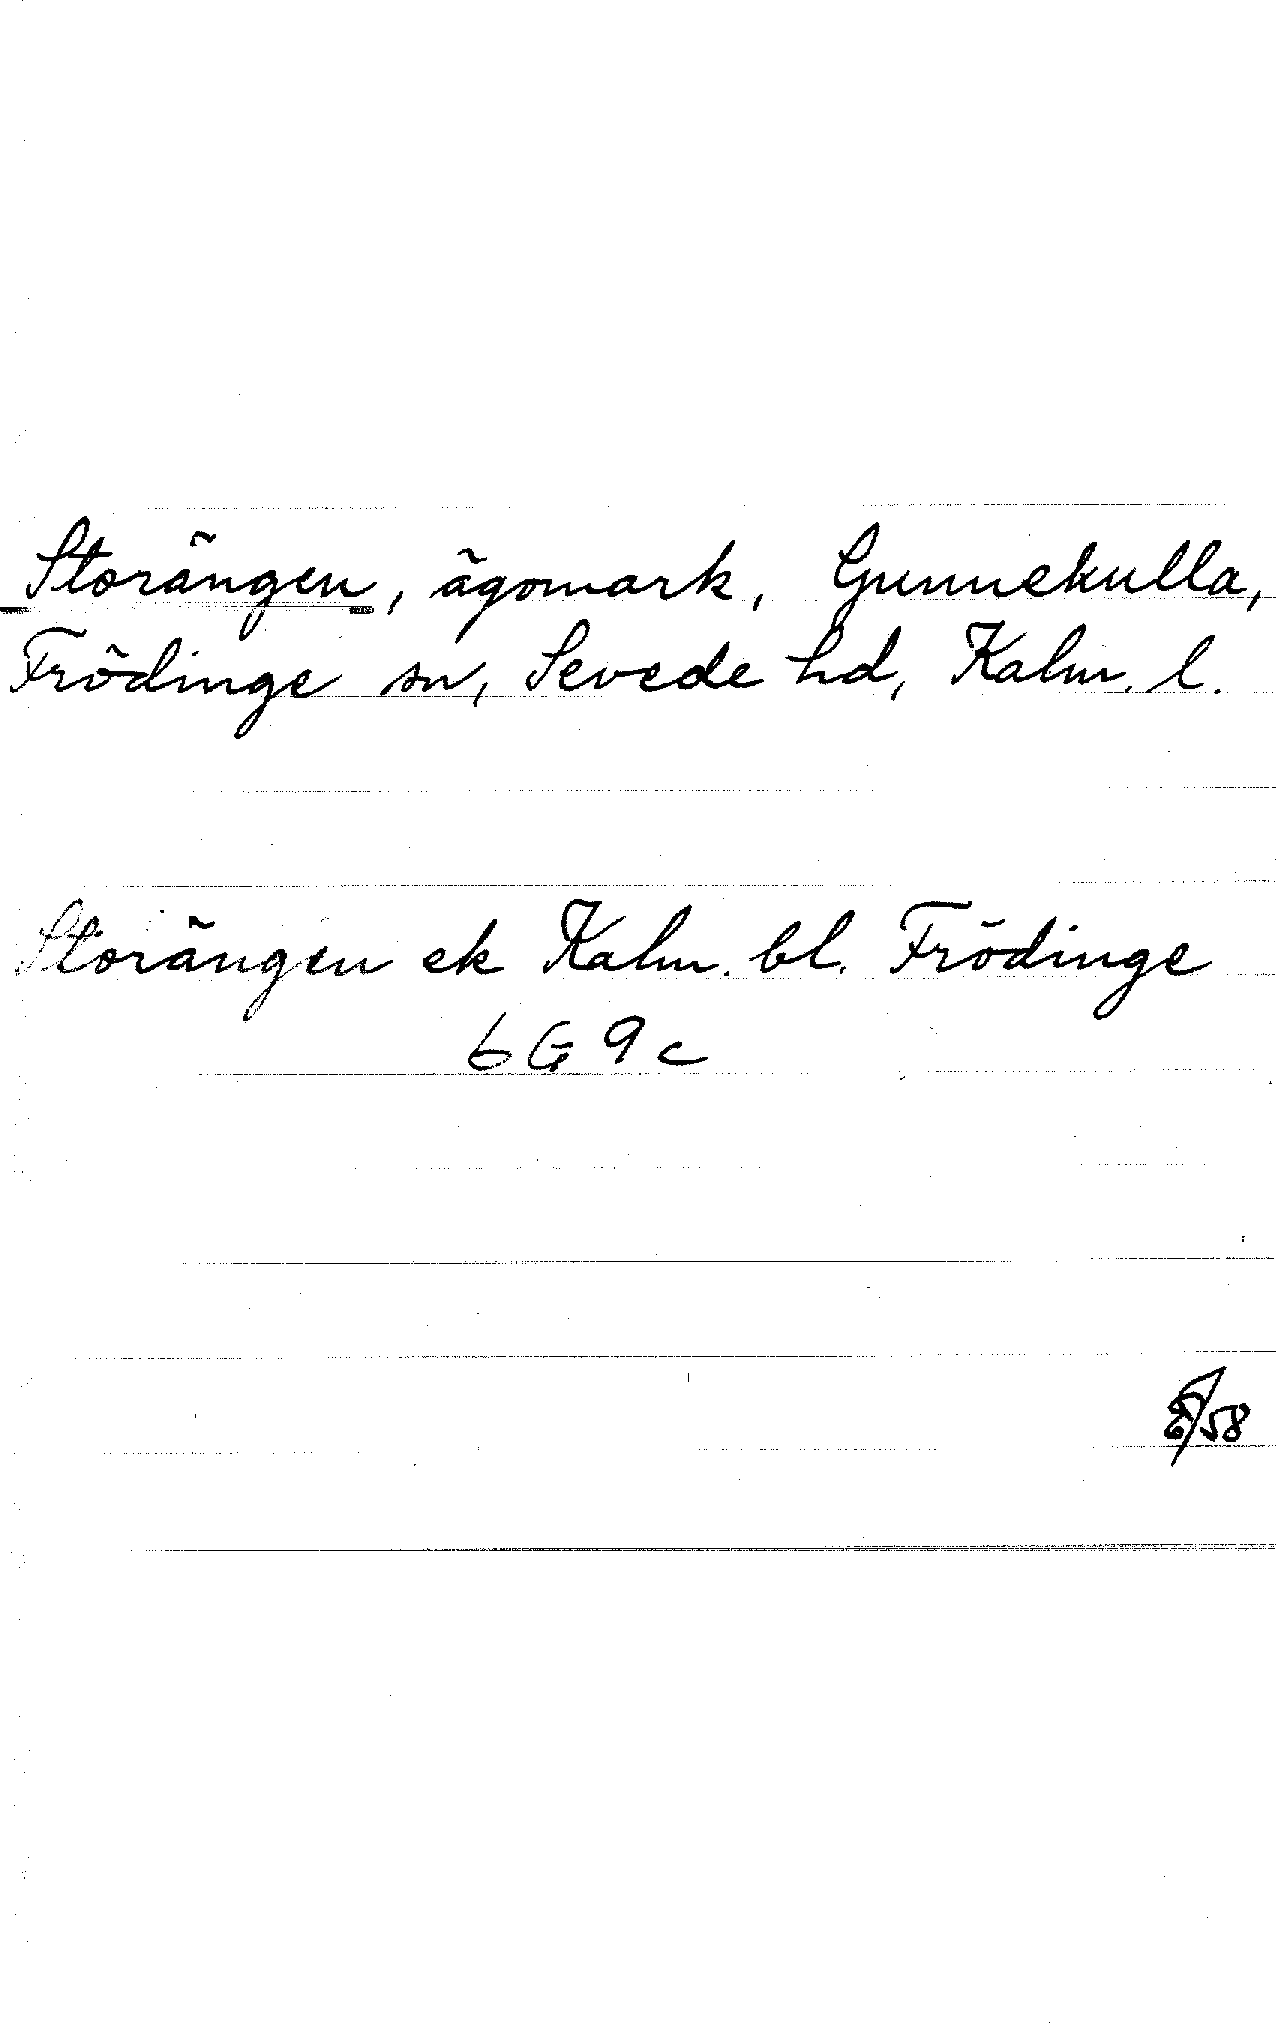 Storängen, ägomark, Gunnekulla,
Frödinge sn, Sevede hd, Kalm. l.
Storängen ek Kalm. bl. Frödinge
6G 9c
/58